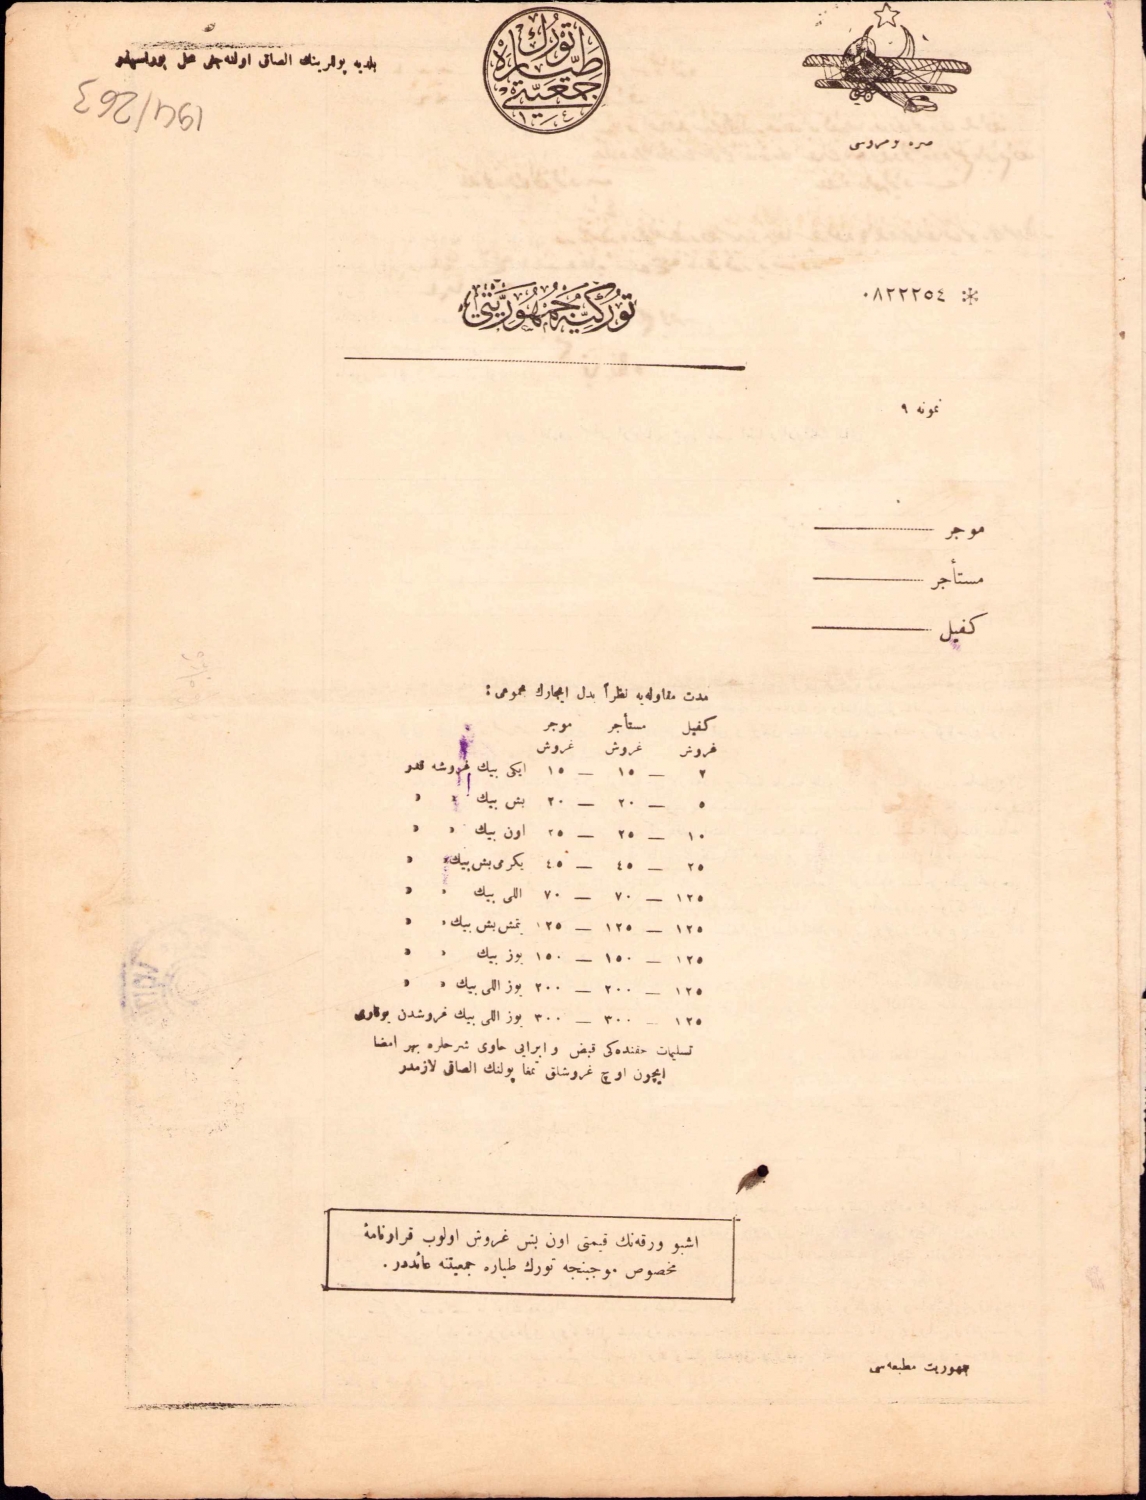 بلديه پوللرينك الصاق اولنه جغى محل بوراسيدر
194/263
تورك طياره جمعيتى
١٣٤١
صره نومروسى
٠٨٢٢٢٥٤
توركيه جمهوريتى
نمونه ٩
موجر
مستأجر
كفيل
مدت مقاوله‌يه نظراً بدل ايجارك مجموعى :
كفيل مستأجر موجر
غروش غروش غروش
٢ — ١٥ — ١٥ ايكى بيك غروشه قدر
٥ — ٢٠ — ٢٠ بش بيك » »
١٠ — ٢٥ — ٢٥ اون بيك » »
٢٥ — ٤٥ — ٤٥ يكرمى بش بيك » »
١٢٥ — ٧٠ — ٧٠ اللى بيك » »
١٢٥ — ١٢٥ — ١٢٥ يتمش بش بيك » »
١٢٥ — ١٥٠ — ١٥٠ يوز بيك » »
١٢٥ — ٢٠٠ — ٢٠٠ يوز اللى بيك » »
١٢٥ — ٣٠٠ — ٣٠٠ يوز اللى بيك غروشدن يوقارى
تسليمات حقنده‌كى قبض و ابرايى حاوى شرحلره بهر امضا
ايچون اوچ غروشلق تمغا پولنك الصاقى لازمدر
اشبو ورقه‌نك قيمتى اون بش غروش اولوب قرارنامهٔ
مخصوص موجبنجه تورك طياره جمعيتنه عائددر .
جمهوريت مطبعه‌سى